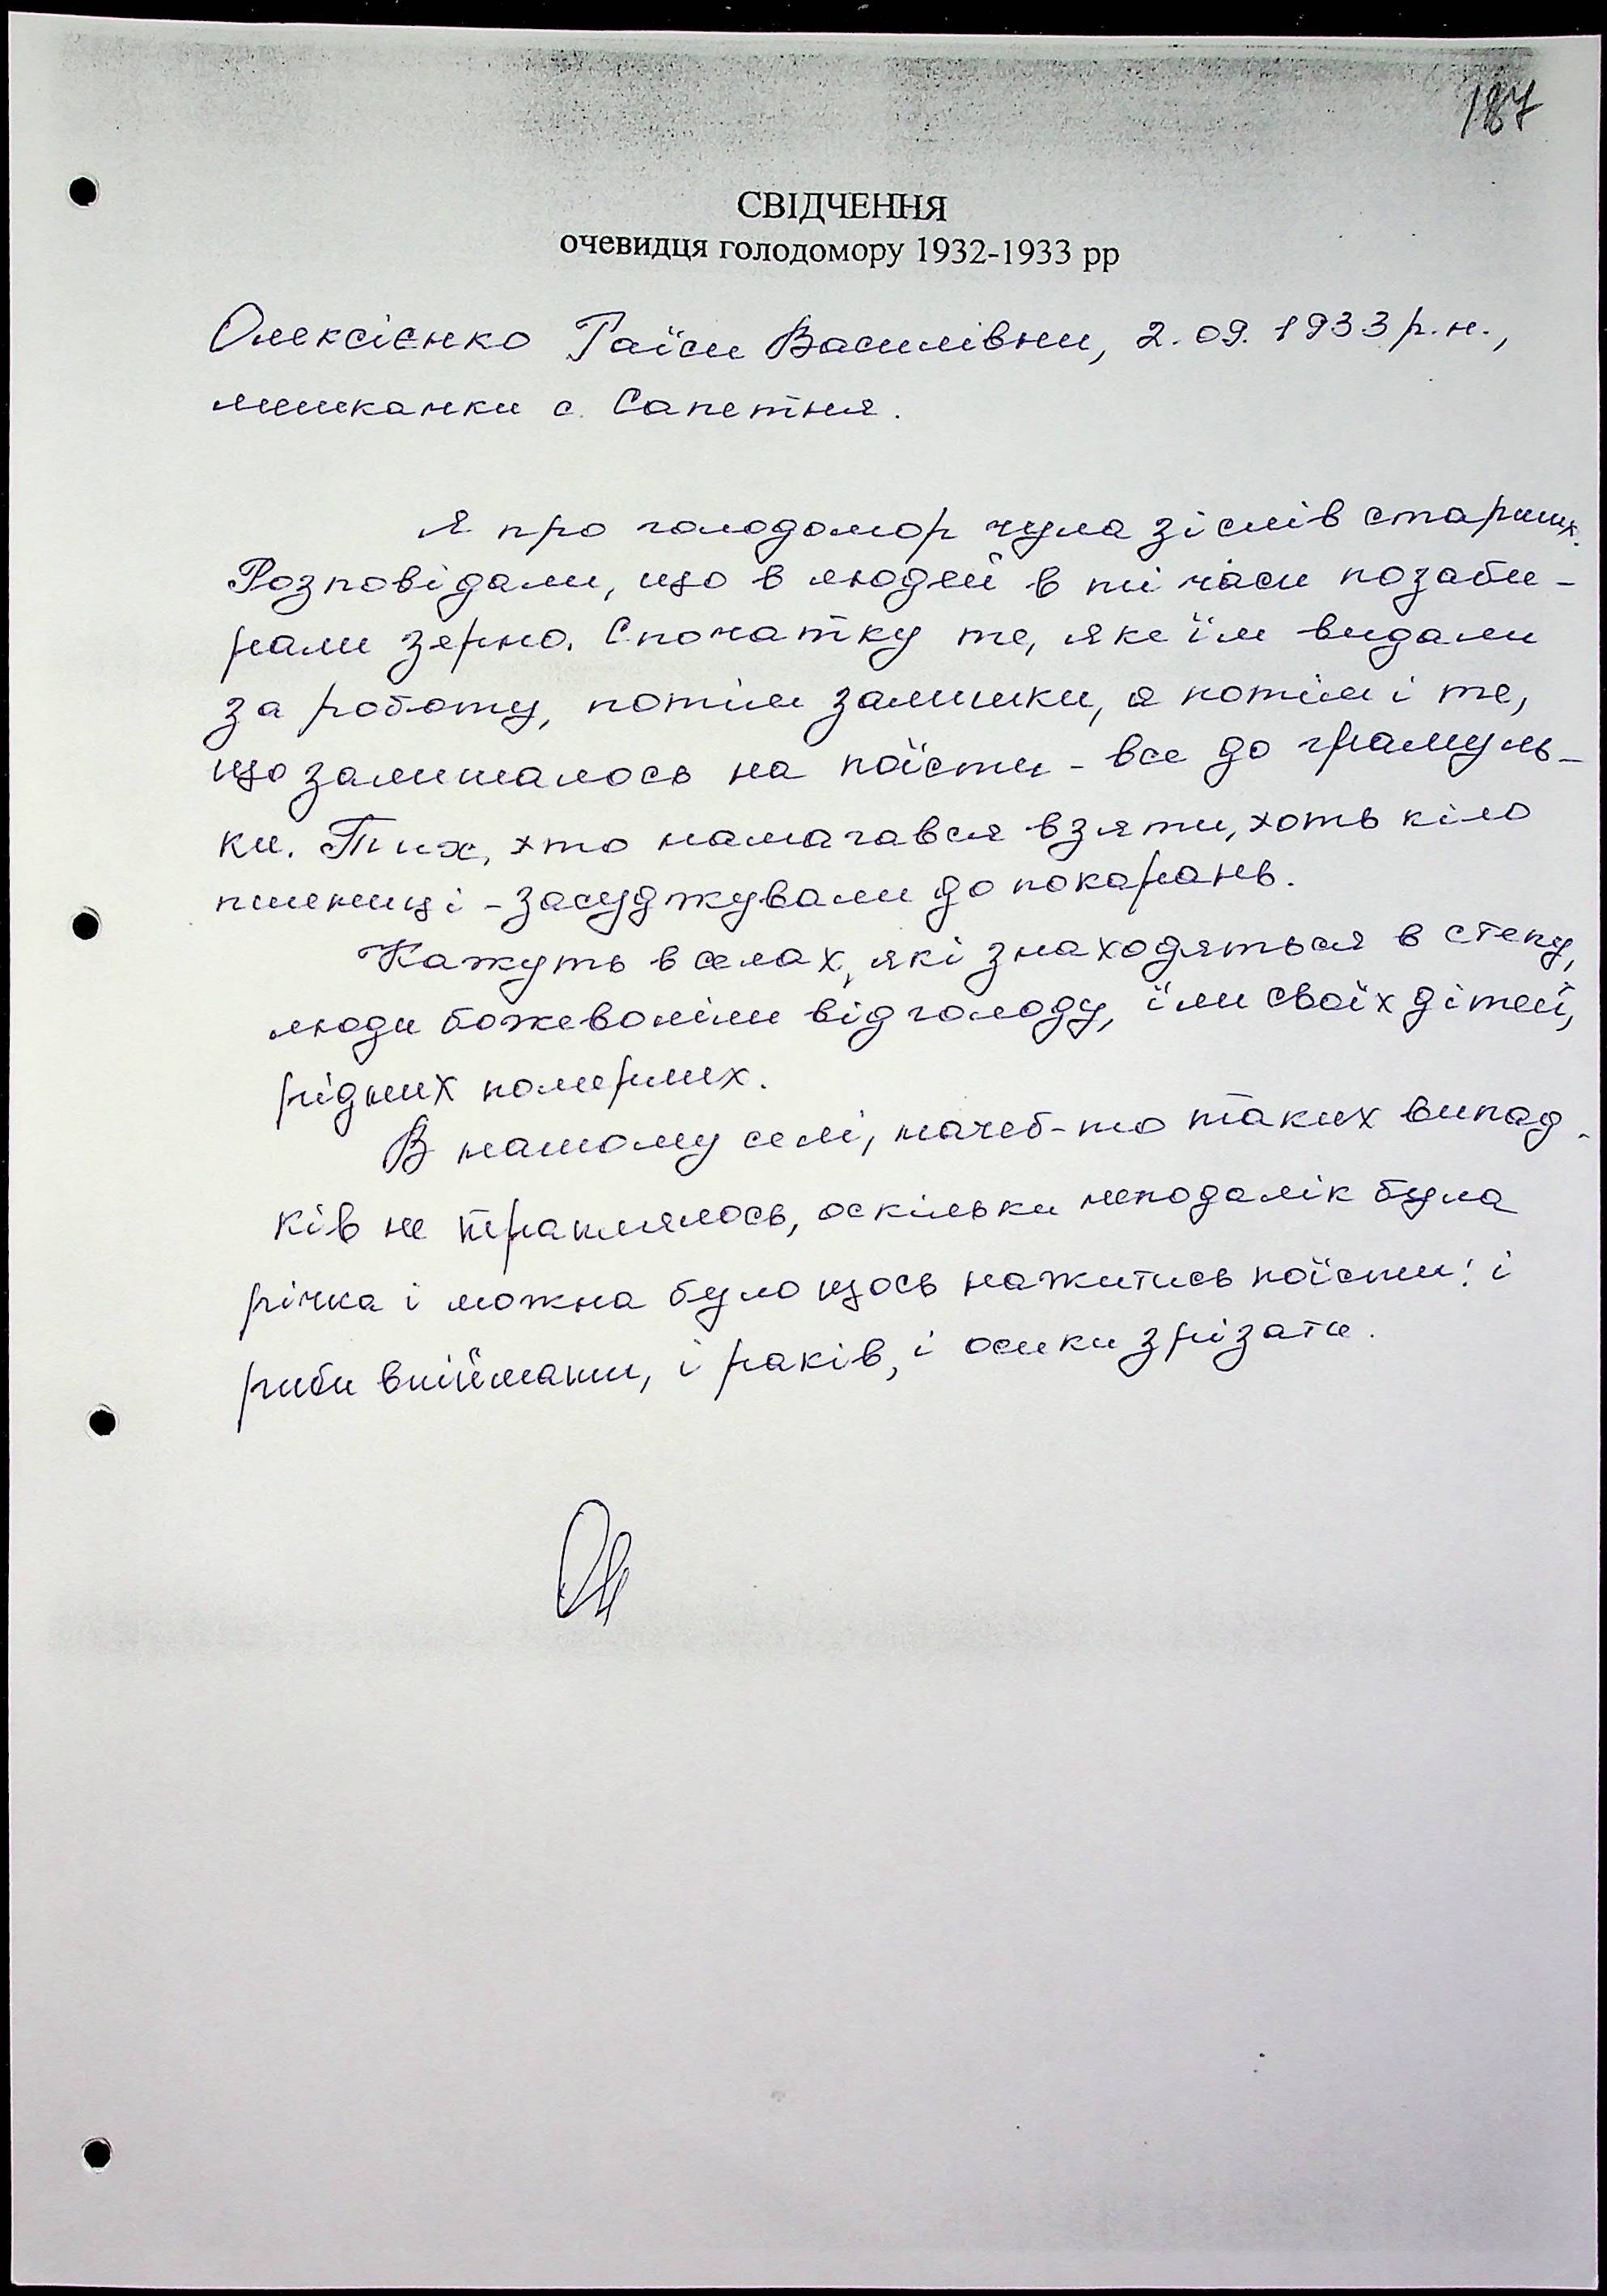 187
СВІДЧЕННЯ
очевидця голодомору 1932-1933 рр
Олексієнко Раїси Василівни, 2.09.1933 р.н.,
мешканки с. Сапетня.
Я про голодомор чула зі слів старших.
Розповідали, що в людей в ті часи позаби-
рали зерно. Спочатку те, яке їм видали
за роботу, потім залишки, а потім і те,
що залишалось на поїсти - все до грамуль-
ки. Тих, хто намагався взяти, хоть кіло
пшениці - засуджували до покарань.
Кажуть в селах, які знаходяться в степу,
люди божеволіли від голоду, їли своїх дітей,
рідних померлих.
В нашому селі, начеб-то таких випад-
ків не траплялось, оскільки неподалік була
річка і можна було щось нажитись поїсти: і
риби впіймати, і раків, і осики зрізати.